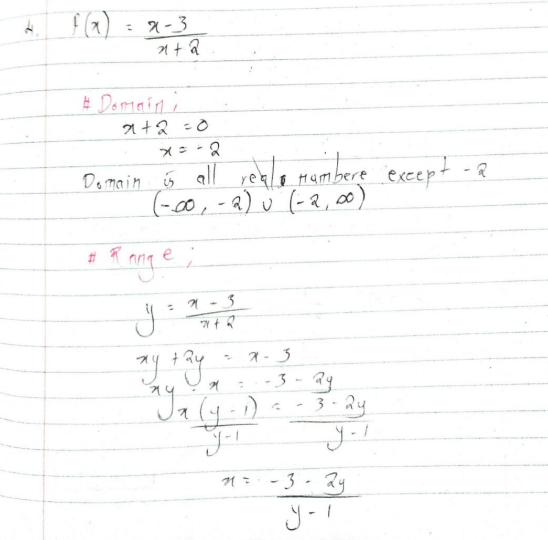 4. f(x) = x-3
x+2
# Domain;
x+2 =0
x = -2
Domain is all real numbere except -2
(-∞, -2) ∪ (-2, ∞)
# Range;
y = x - 3
x+2
xy + 2y = x - 3
xy - x = -3 - 2y
x(y - 1) = -3 - 2y
y-1 y-1
x = -3 - 2y
y - 1